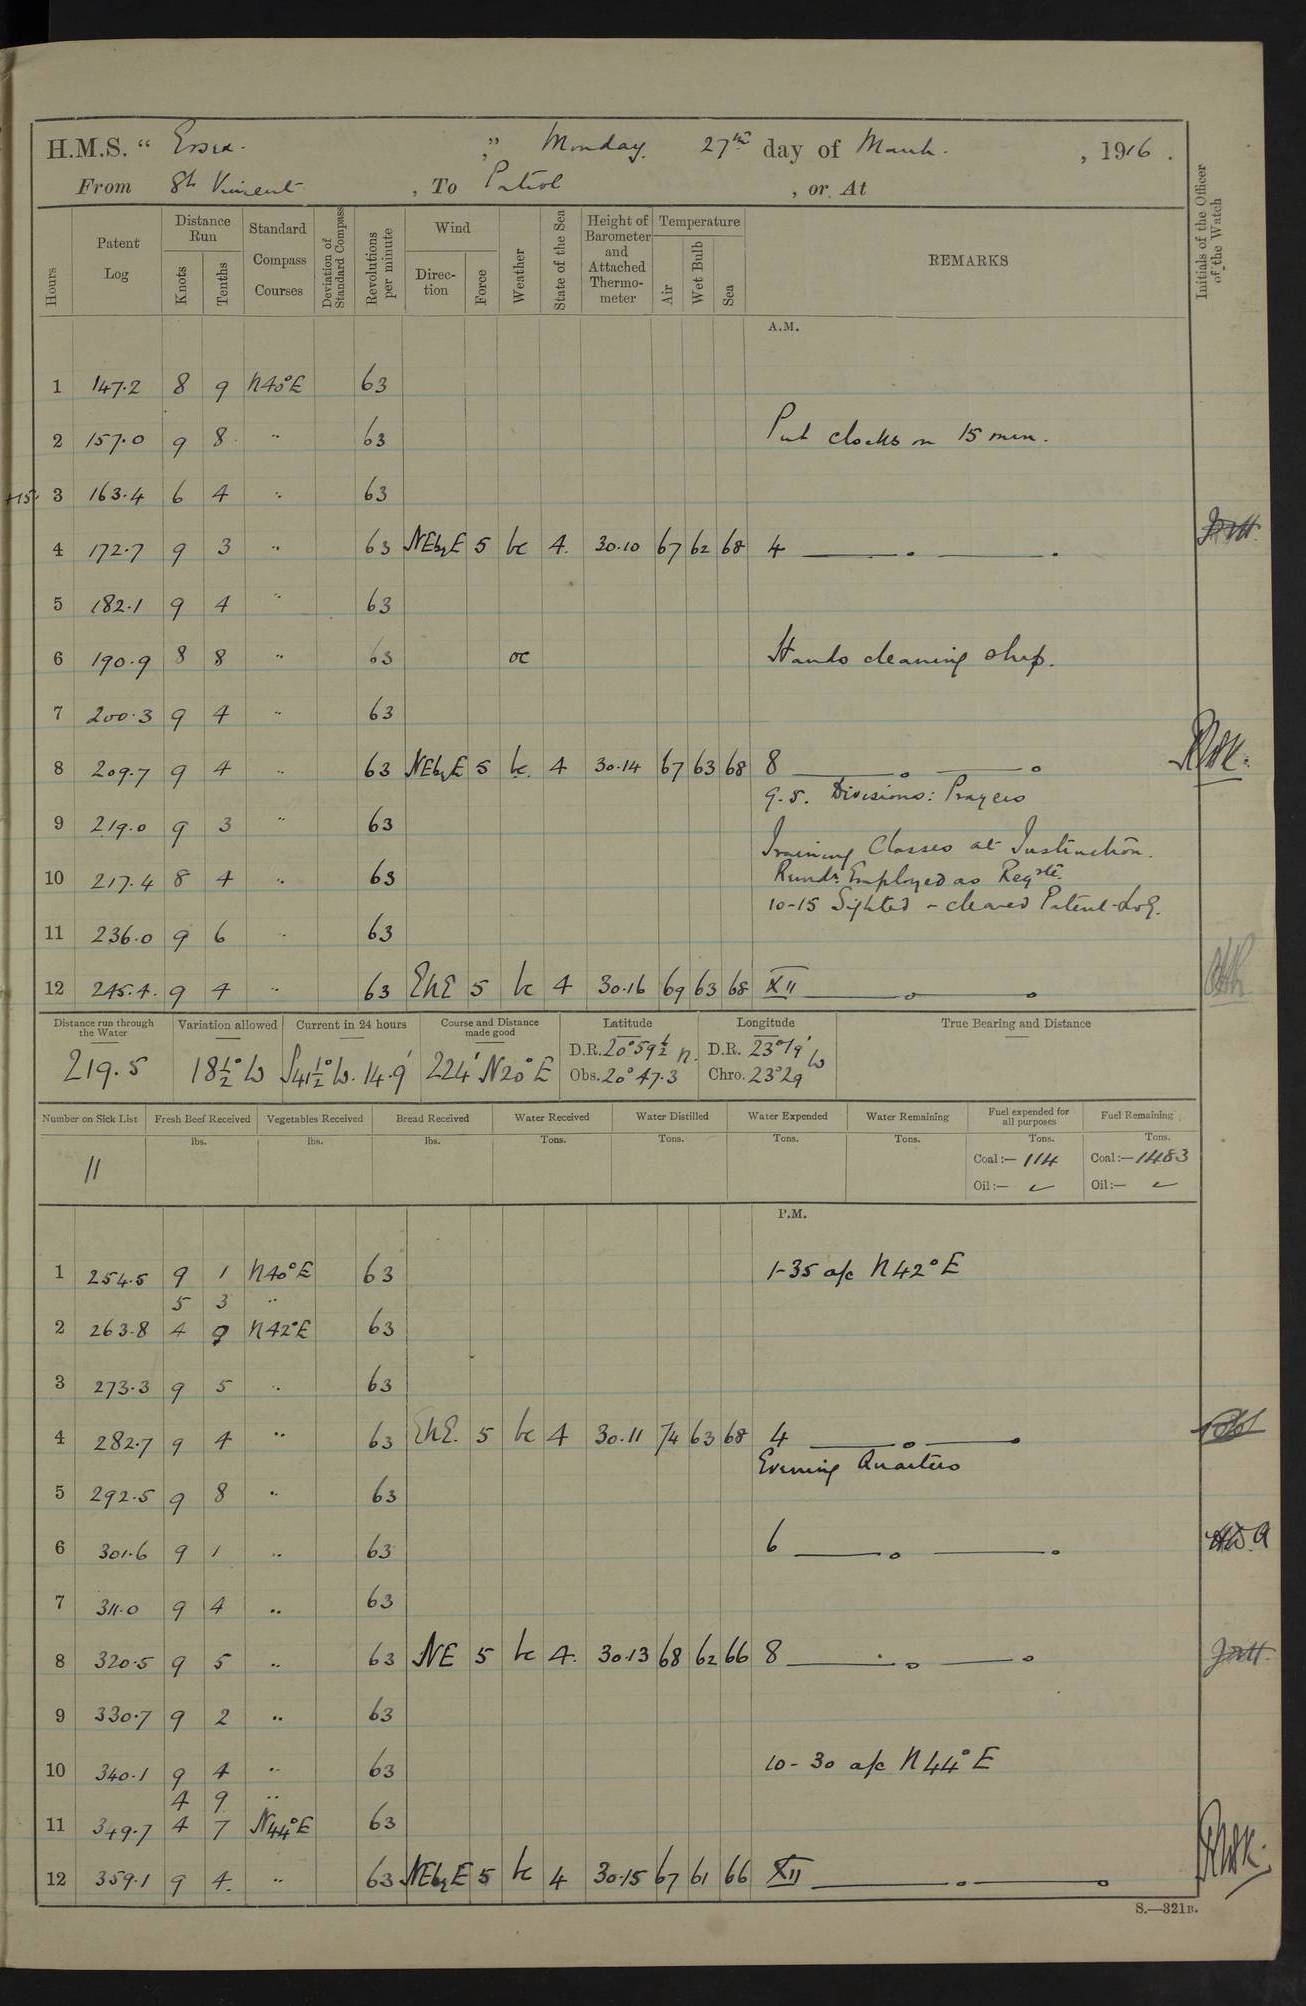 H.M.S. “ Essex. „ Monday. 27th day of March. , 1916 .
From St Vincent , To Patrol , or At
Hours
Patent Log
Distance Run
Knots
Tenths
Standard Compass Courses
Deviation of Standard Compass
Revolutions per minute
Wind
Direction
Force
Weather
State of the Sea
Height of Barometer and Attached Thermometer
Temperature
Air
Wet Bulb
Sea
REMARKS
Initials of the Officer of the Watch
A.M.
1 147.2 8 9 N40°E 63
2 157.0 9 8 " 63 Put clocks on 15 min.
+15. 3 163.4 6 4 " 63
4 172.7 9 3 " 63 NEbyE 5 bc 4. 30.10 67 62 68 4
5 182.1 9 4 " 63
6 190.9 8 8 " 63 oc Hands cleaning ship.
7 200.3 9 4 " 63
8 209.7 9 4 " 63 NEbyE 5 bc 4 30.14 67 63 68 8
9.5. Divisions: Prayers
9 219.0 9 3 " 63
Training Classes at Instruction.
10 217.4 8 4 " 63 Rundr Employed as Reqste.
10-15 Sighted - cleared Patent-Log.
11 236.0 9 6 " 63
12 245.4. 9 4 " 63 ENE 5 bc 4 30.16 69 63 68 XII
Distance run through the Water
Variation allowed
Current in 24 hours
Course and Distance made good
Latitude
Longitude
True Bearing and Distance
219.5 18½° W S41½°W. 14.9' 224' N20°E D.R. 20°59½ N. D.R. 23°19' W
Obs. 20° 47.3 Chro. 23°29
Number on Sick List
Fresh Beef Received
Vegetables Received
Bread Received
Water Received
Water Distilled
Water Expended
Water Remaining
Fuel expended for all purposes
Fuel Remaining
lbs. lbs. lbs. Tons. Tons. Tons. Tons. Tons. Tons.
11 Coal:— 114 Coal:— 1483
Oil:— ✓ Oil:— ✓
P.M.
1 254.5 9 1 N40°E 63 1-35 a/c N42°E
5 3 "
2 263.8 4 9 N42°E 63
3 273.3 9 5 " 63
4 282.7 9 4 " 63 ENE. 5 bc 4 30.11 74 63 68 4
Evening Quarters
5 292.5 9 8 " 63
6 301.6 9 1 " 63 6
7 311.0 9 4 " 63
8 320.5 9 5 " 63 NE 5 bc 4. 30.13 68 62 66 8
9 330.7 9 2 " 63
10 340.1 9 4 " 63 10-30 a/c N44°E
4 9 "
11 349.7 4 7 N44°E 63
12 359.1 9 4. " 63 NEbyE 5 bc 4 30.15 67 61 66 XII
S.—321B.